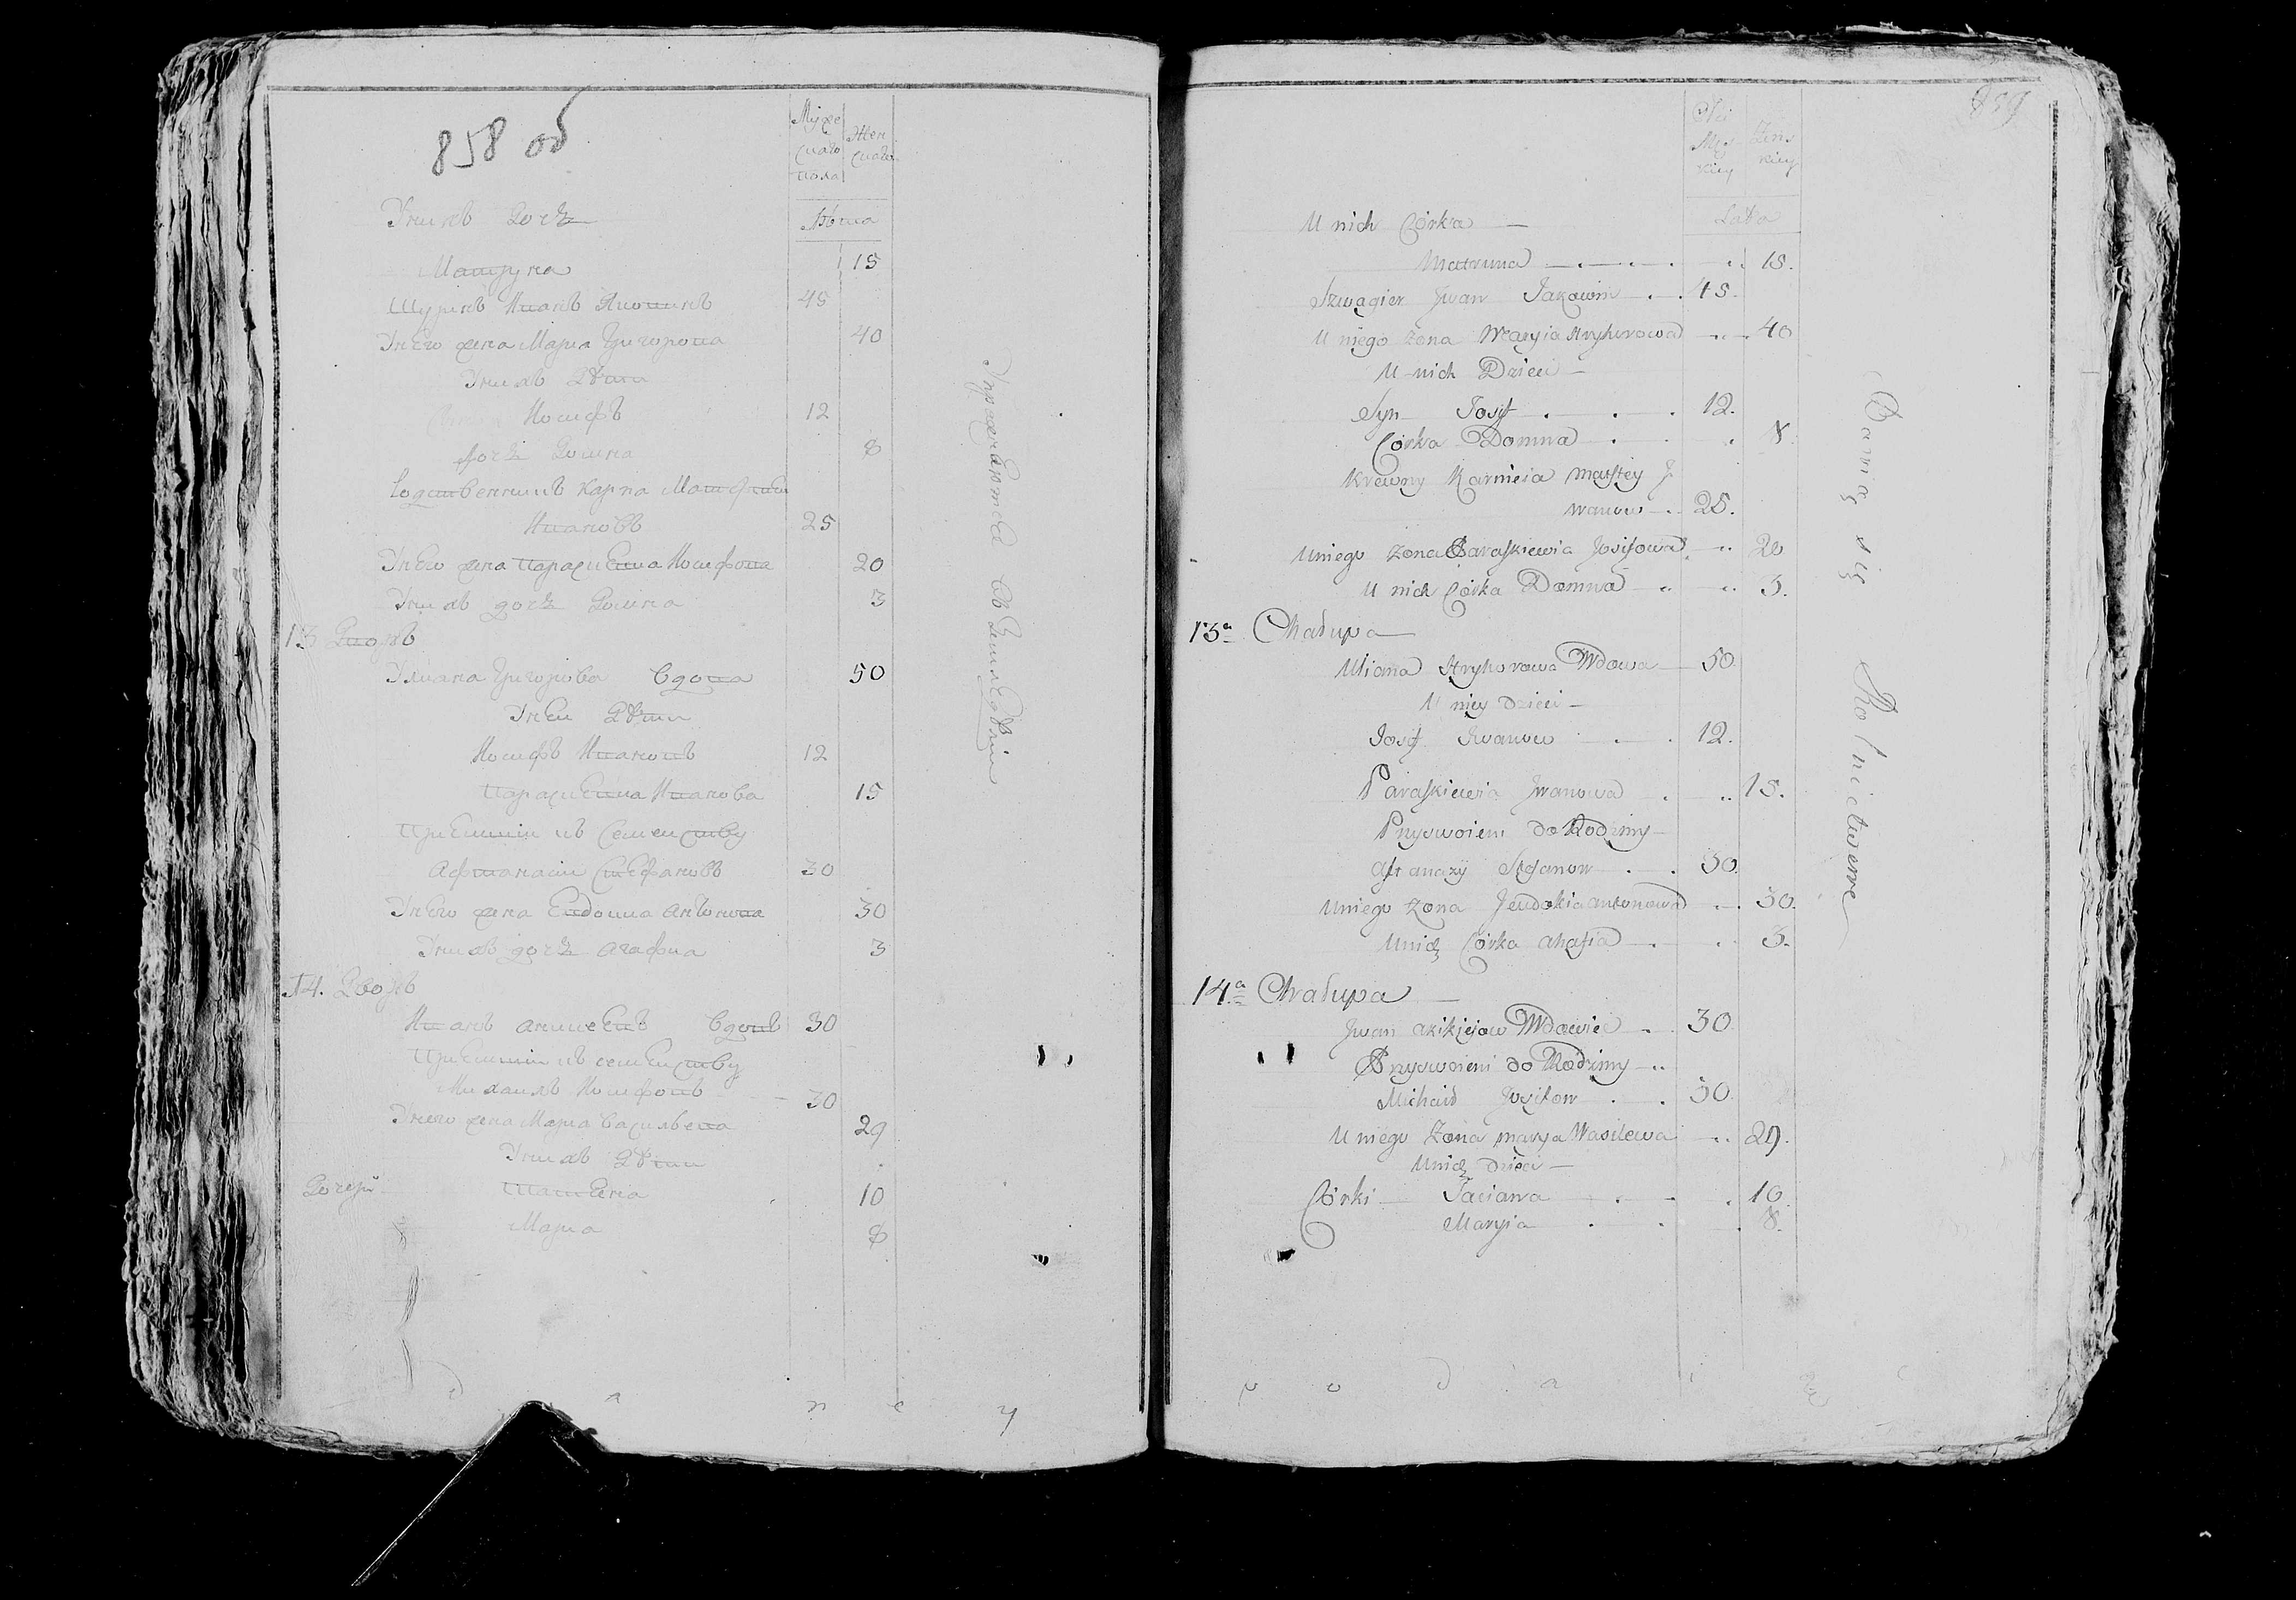 858 об
Мужескаго пола
Женскаго
Лѣта
У нихъ Дочь
Матруна 15
Шуринъ Иванъ Яковинъ 45
У него жена Марья Григорова 40
У нихъ Дѣти
Иосифъ 12
дочь Домна 8
Родственникъ Карпа Матфией
Ивановъ 25
У него жена Параскевия Иосифова 20
У нихъ дочь Домна 3
13 Дворъ
Улиана Григорова Вдова 50
У ней Дѣти
Иосифъ Ивановъ 12
Параскевия Иванова 15
Приемыши къ семейству
Афтанасий Стефановъ 30
У него жена Евдокия Антонова 30
У нихъ дочь Агафия 3
14. Дворъ
Иванъ Аникеевъ Вдовъ 30
Приемыши къ семейству
Михаилъ Иосифовъ 30
У него жена Марья Васильева 29
У нихъ Дѣти
Дочери Татиена 10
Марья 8
Упражняются въ Земледѣлии
д а н е у
859
Płci
Męskiey
Żenskiey
Lata
U nich Córka —
Matruna 15.
Szwagier Jwan Jakowin 45.
U niego żona Maryia Hryhorowa 40
U nich Dzieci —
Syn Josif 12.
Córka Domna 8
Krewny Karnieia Matfiey J
wanow 25.
U niego żona Paraskiewia Josifowa 20
U nich Córka Domna 3.
13a Chałupa
Uliana Hryhorowa Wdowa 50
U niey Dzieci —
Josif Jwanow 12.
Paraskiewia Jwanowa 15.
Przyswoieni do Rodziny
Aftanazy Stefanow 30.
U niego żona Jeudokia Antonowa 30.
U nich Córka Ahafia 3.
14a Chałupa —
Jwan Akikiejow Wdowiec 30
Przyswoieni do Rodziny
Michaił Josifow 30
U niego żona Marya Wasilewa 29.
U nich Dzieci —
Córki Taciana 10
Marysia 8.
Bawią się Rolnictwem
р о д а